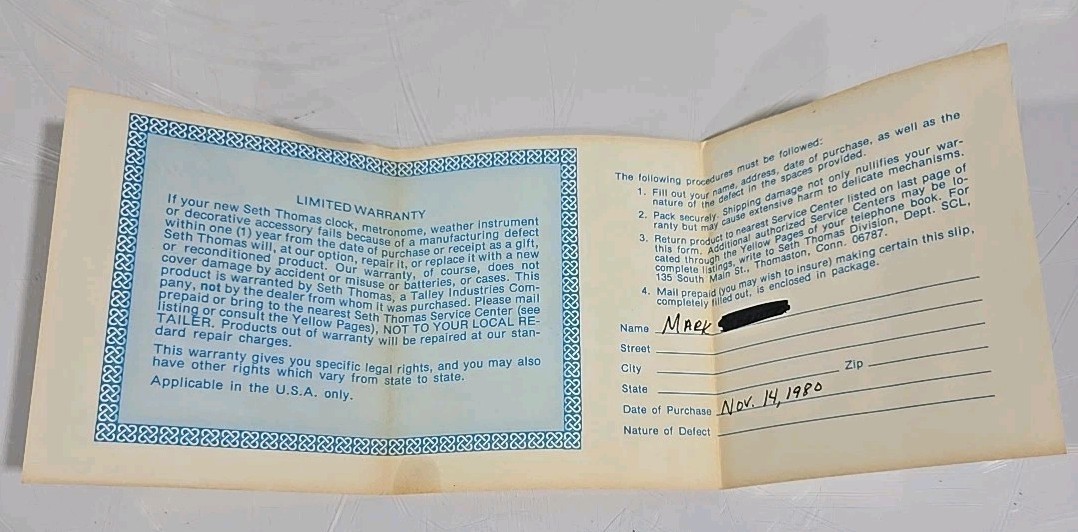 LIMITED WARRANTY
If your new Seth Thomas clock, metronome, weather instrument
or decorative accessory fails because of a manufacturing defect
within one (1) year from the date of purchase or receipt as a gift,
Seth Thomas will, at our option, repair it, or replace it with a new
or reconditioned product. Our warranty, of course, does not
cover damage by accident or misuse or batteries, or cases. This
product is warranted by Seth Thomas, a Talley Industries Com-
pany, not by the dealer from whom it was purchased. Please mail
prepaid or bring to the nearest Seth Thomas Service Center (see
listing or consult the Yellow Pages), NOT TO YOUR LOCAL RE-
TAILER. Products out of warranty will be repaired at our stan-
dard repair charges.
This warranty gives you specific legal rights, and you may also
have other rights which vary from state to state.
Applicable in the U.S.A. only.
The following procedures must be followed:
1. Fill out your name, address, date of purchase, as well as the
nature of the defect in the spaces provided.
2. Pack securely. Shipping damage not only nullifies your war-
ranty but may cause extensive harm to delicate mechanisms.
3. Return product to nearest Service Center listed on last page of
this form. Additional authorized Service Centers may be lo-
cated through the Yellow Pages of your telephone book. For
complete listings, write to Seth Thomas Division, Dept. SCL,
135 South Main St., Thomaston, Conn. 06787.
4. Mail prepaid (you may wish to insure) making certain this slip,
completely filled out, is enclosed in package.
Name MARK
Street
City
State Zip
Date of Purchase Nov. 14, 1980
Nature of Defect